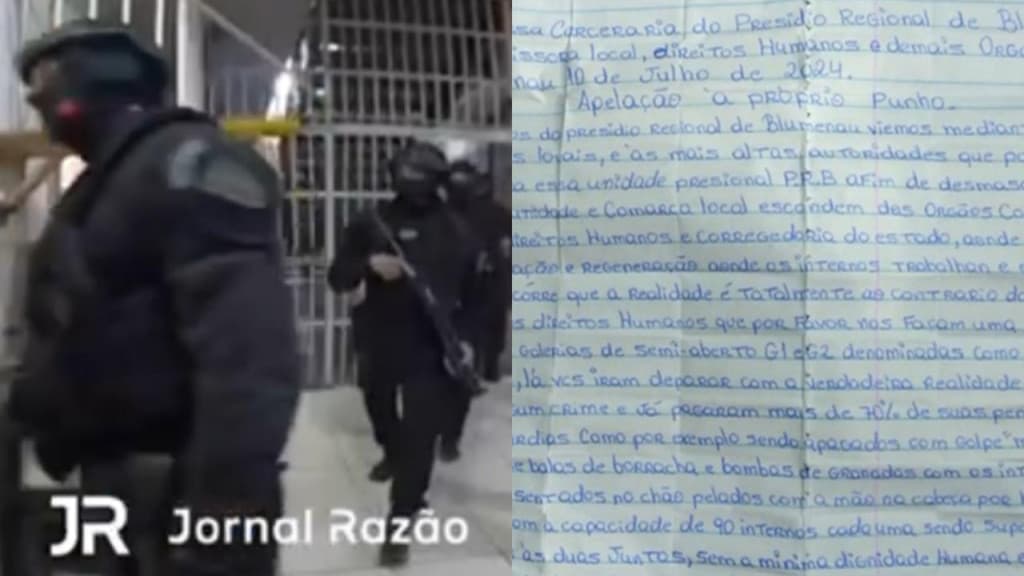 JR Jornal Razão
sa Carceraria do Presidio Regional de Bl
issora local, direitos Humanos e demais Orga
nau 10 de Julho de 2024.
Apelação a próprio Punho.
os do presidio Regional de Blumenau viemos median
s locais, e as mais altas autoridades que po
a essa unidade presional P.R.B afim de desmas
unidade e Comarca local escondem das Orgãos Co
ireitos Humanos e corregedoria do estado, aonde
ação e Regeneração aonde os internos trabalhan e
córre que a Realidade é totalmente ao contrario do
s direitos Humanos que por Favor nos Façam uma
Galerias de semi-aberto G1 e G2 denominadas como
, lá vcs iram deparar com a verdadeira Realidade
um crime e Já pagaram mais de 70% de suas pen
ardias como por exemplo sendo apagados com Golpe
e balas de borracha e bombas de Granadas com os int
sentados no chão pelados com a mão na cabeça por
om a capacidade de 90 internos cada uma sendo sup
as duas Juntas, sem a minima dignidade Humana e